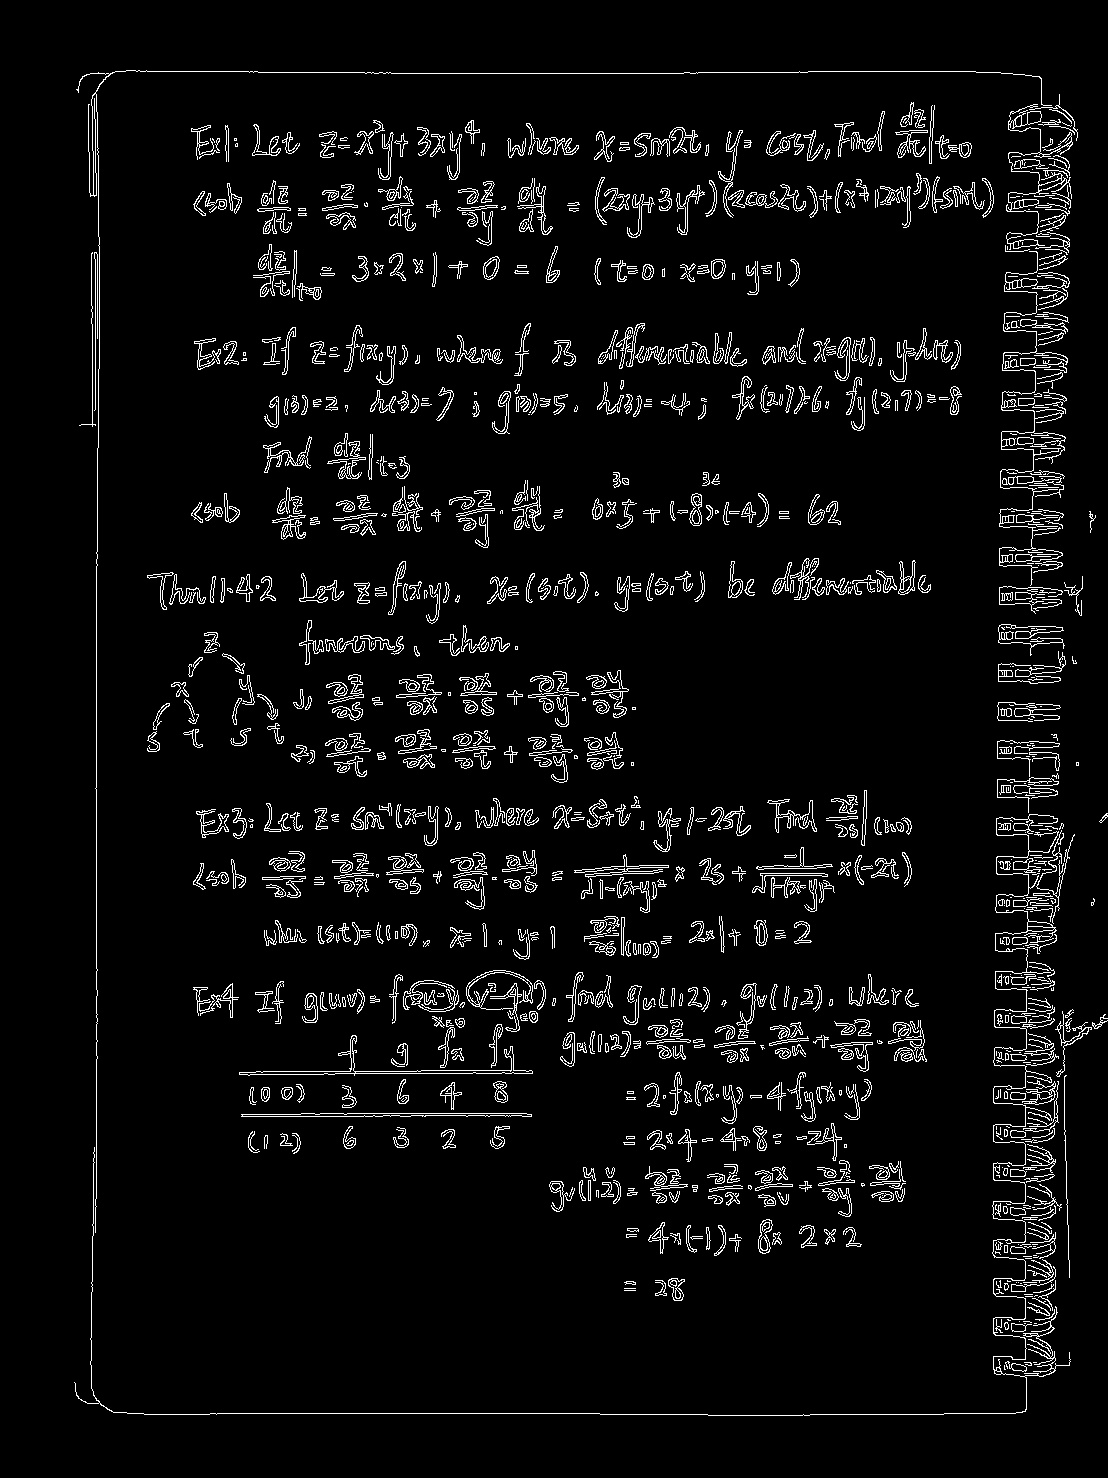 Ex1: Let z=x²y+3xy⁴, where x=sin2t, y=cost, Find dz/dt|t=0
<sol> dz/dt = ∂z/∂x · dx/dt + ∂z/∂y · dy/dt = (2xy+3y⁴)(2cos2t)+(x²+12xy³)(-sint)
dz/dt|t=0 = 3×2×1+0 = 6 (t=0, x=0, y=1)
Ex2: If z=f(x,y), where f is differentiable and x=g(t), y=h(t)
g(3)=2, h(3)=7; g'(3)=5, h'(3)=-4; fx(2,7)=6, fy(2,7)=-8
Find dz/dt|t=3
<sol> dz/dt = ∂z/∂x · dx/dt + ∂z/∂y · dy/dt = 6×5+(-8)·(-4) = 62
Thm 11.4.2 Let z=f(x,y), x=(s,t). y=(s,t) be differentiable
functions, then.
z
x y
s t s t
1) ∂z/∂s = ∂z/∂x · ∂x/∂s + ∂z/∂y · ∂y/∂s.
2) ∂z/∂t = ∂z/∂x · ∂x/∂t + ∂z/∂y · ∂y/∂t.
Ex3: Let z=sin⁻¹(x-y), where x=s²+t², y=1-2st Find ∂z/∂s|(1,0)
<sol> ∂z/∂s = ∂z/∂x · ∂x/∂s + ∂z/∂y · ∂y/∂s = 1/√1-(x-y)² × 2s + -1/√1-(x-y)² ×(-2t)
when (s,t)=(1,0), x=1, y=1 ∂z/∂s|(1,0) = 2×1+0=2
Ex4 If g(u,v)=f(2u-v, v²-4u), find gu(1,2), gv(1,2), where
x=0 y=0
f g fx fy
(0 0) 3 6 4 8
(1 2) 6 3 2 5
gu(1,2)= ∂z/∂u = ∂z/∂x · ∂x/∂u + ∂z/∂y · ∂y/∂u
= 2·fx(x,y)-4·fy(x,y)
= 2×4-4×8= -24.
u v
gv(1,2)= ∂z/∂v = ∂z/∂x · ∂x/∂v + ∂z/∂y · ∂y/∂v
= 4×(-1)+8×2×2
= 28